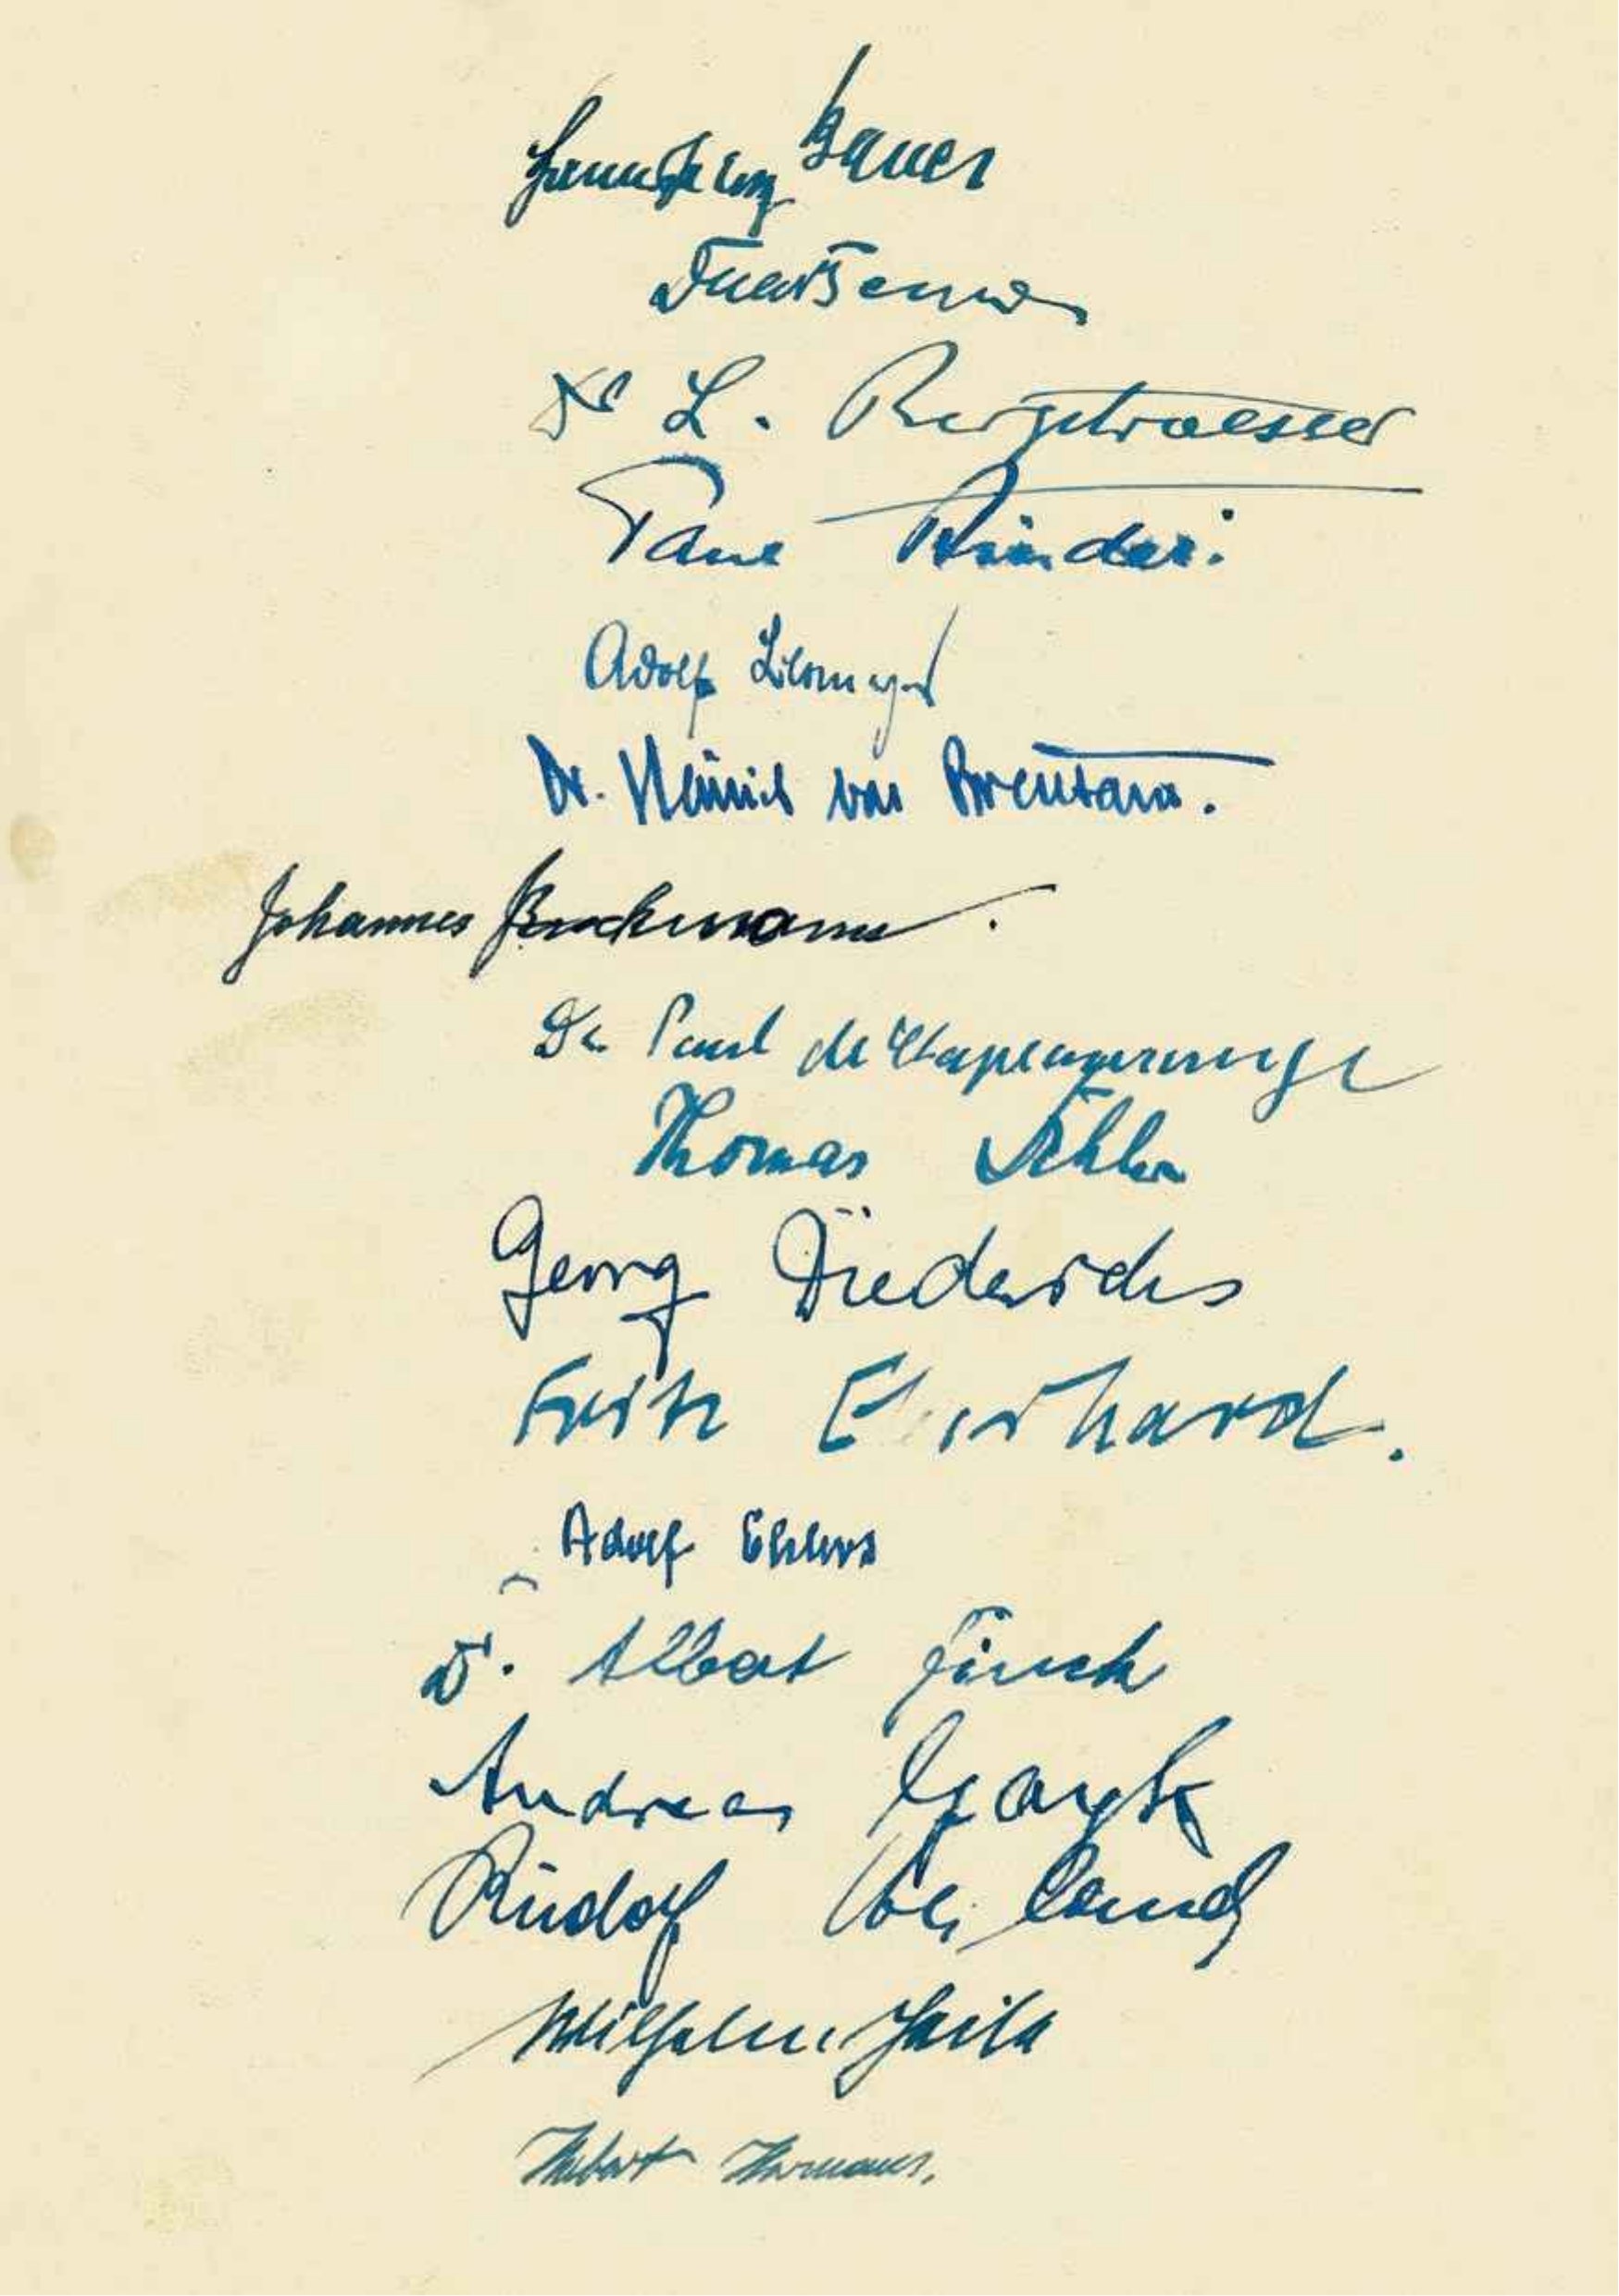 Hannsheinz Bauer
Dr L. Bergstraesser
Paul Binder.
Adolf Blomeyer
Dr. Heinrich von Brentano.
Johannes Brockmann.
Dr. Paul de Chapeaurouge
Thomas Dehler
Georg Diederichs
Fritz Eberhard.
Adolf Ehlers
Dr. Albert Finck
Andreas Gayk
Rudolf Heiland
Wilhelm Heile
Hubert Hermans.